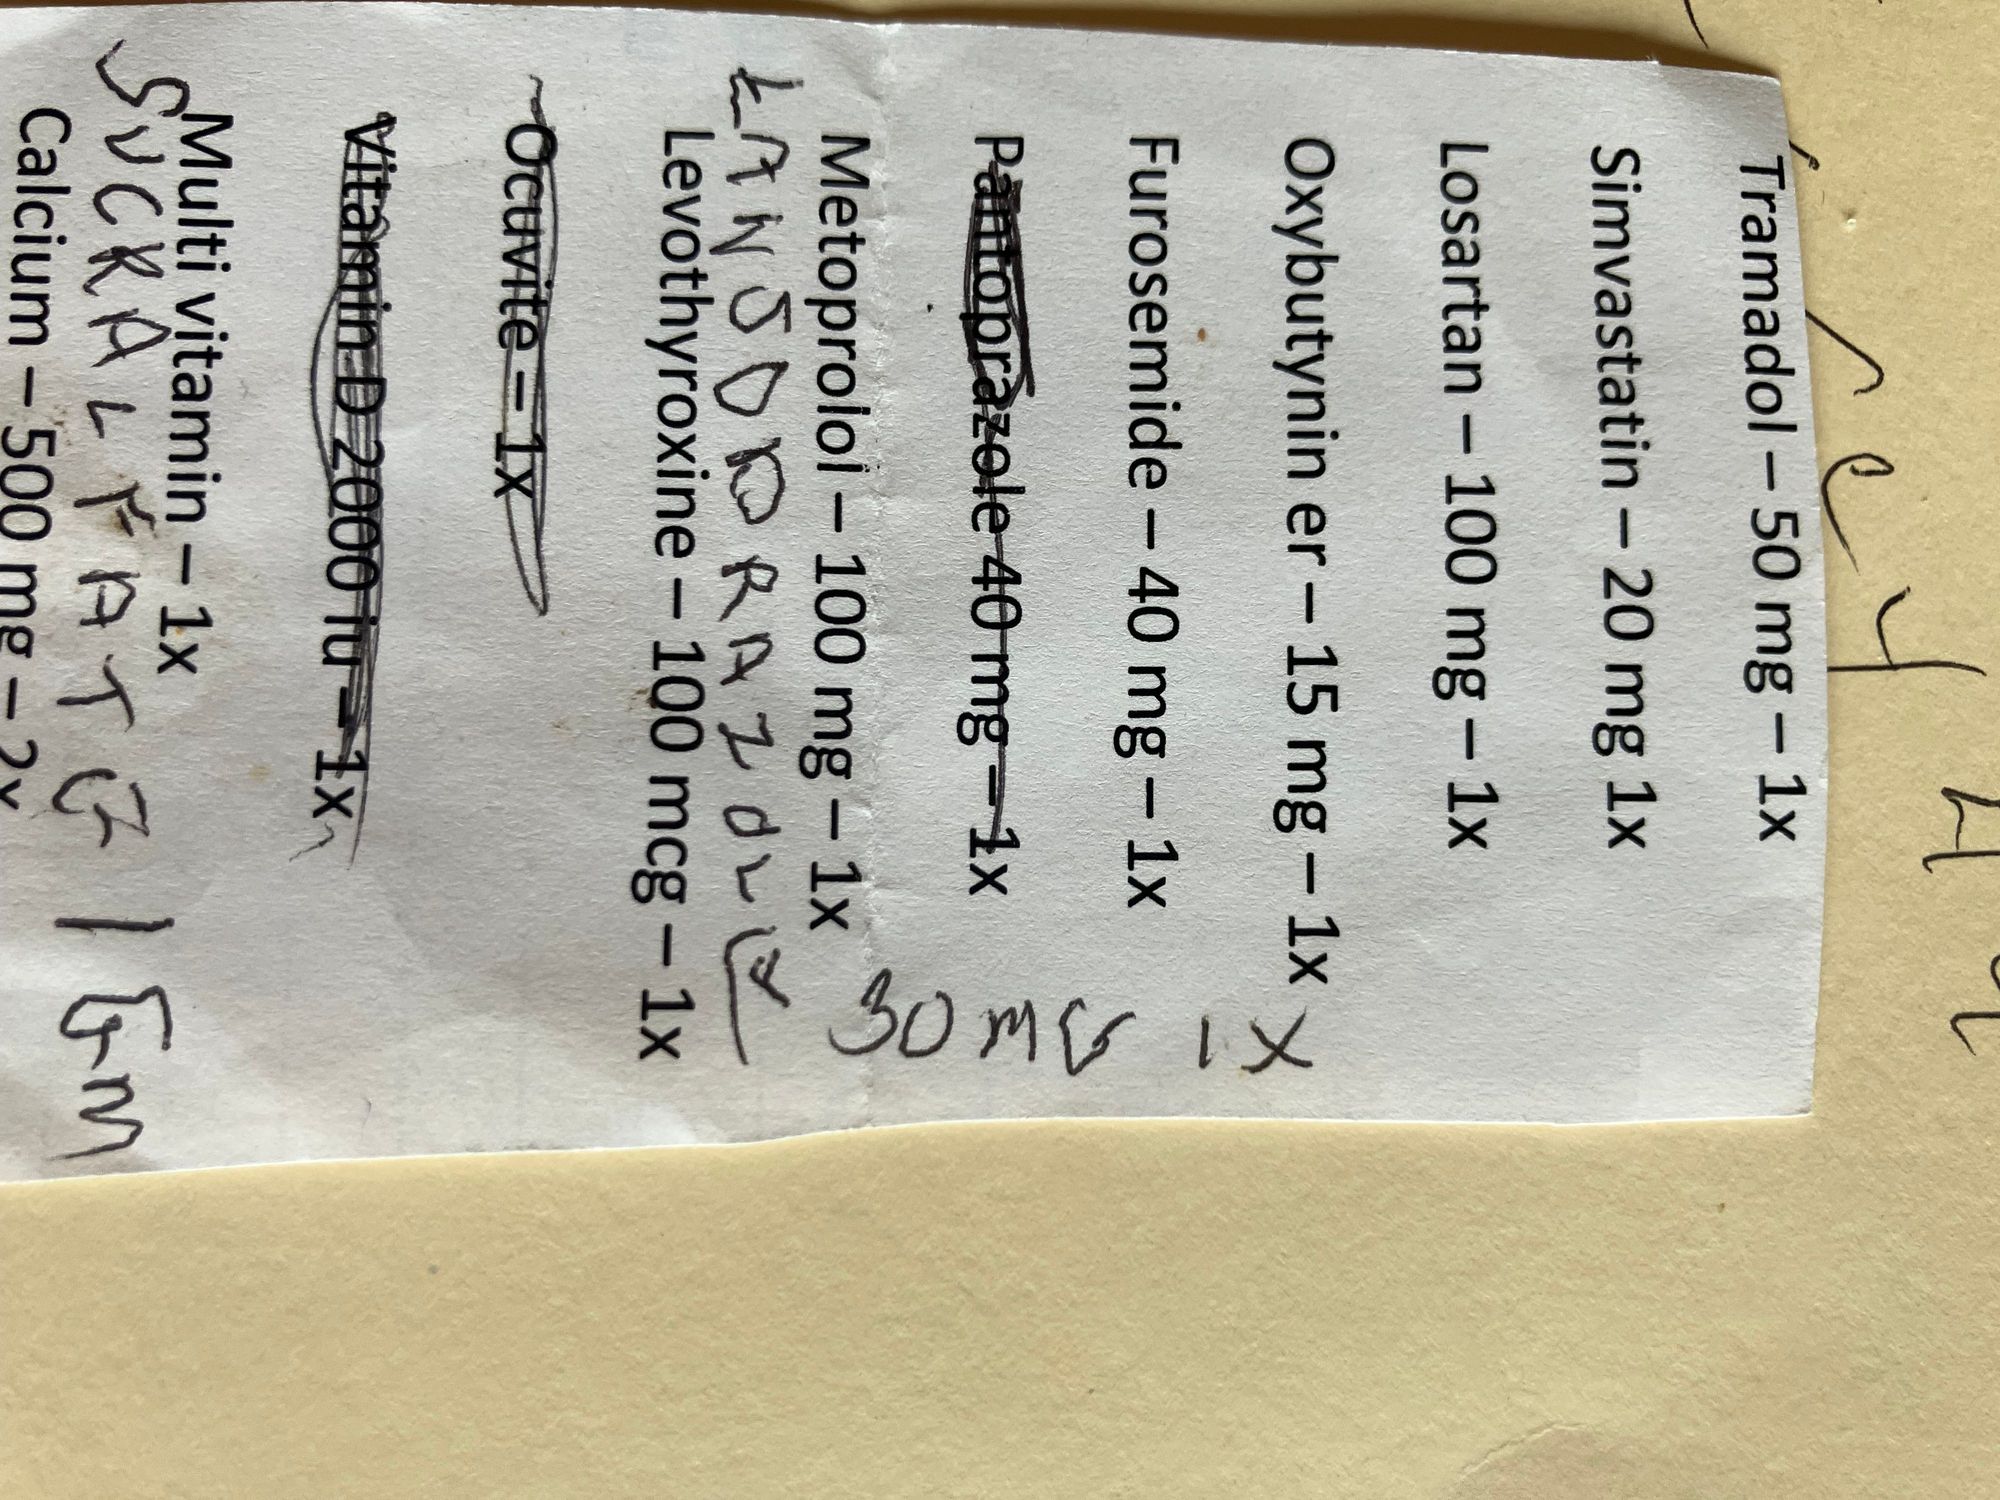 Tramadol – 50 mg – 1x
Simvastatin – 20 mg 1x
Losartan – 100 mg – 1x
Oxybutynin er – 15 mg – 1x
Furosemide – 40 mg – 1x
Pantoprazole 40 mg – 1x
Metoprolol – 100 mg – 1x
LANSOPRAZOLE 30 MG 1X
Levothyroxine – 100 mcg – 1x
Ocuvite – 1x
Vitamin D 2000 iu – 1x
Multi vitamin – 1x
SUCRALFATE 1 GM
Calcium – 500 mg – 2x